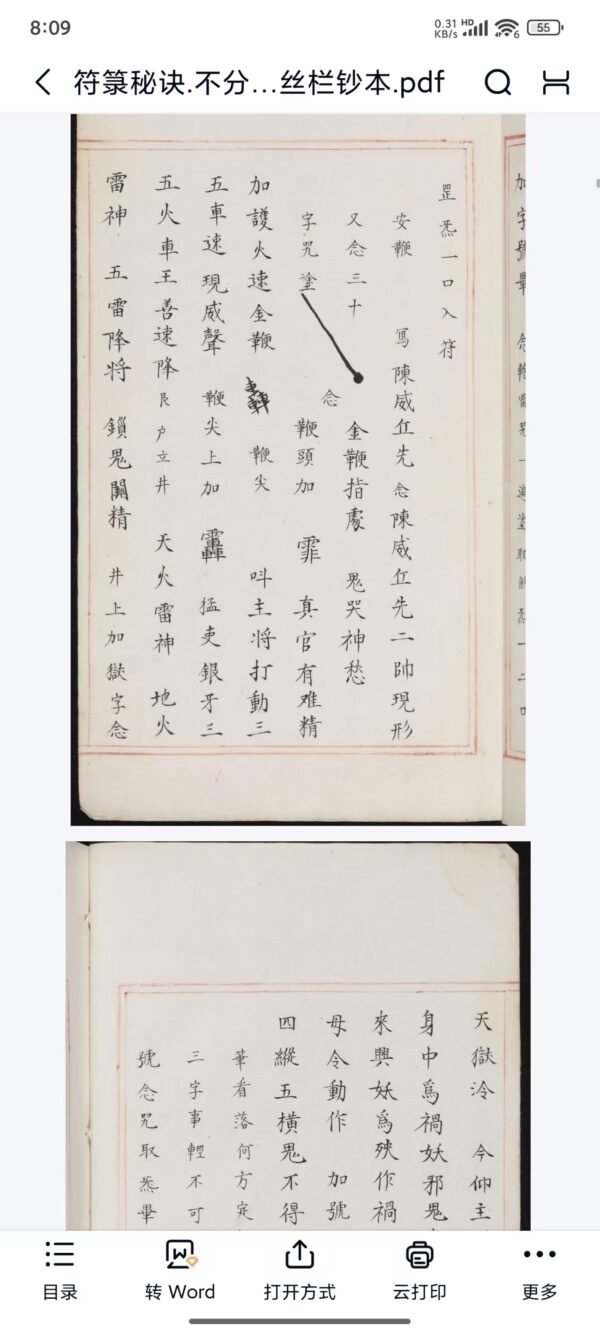 8:09
0.31 KB/s HD 6 55
符箓秘诀.不分…丝栏钞本.pdf
加字號畢 念
罡炁一口入符
安鞭 寫陳威丘先念陳威丘先二帥現形
又念三十 金鞭指處 鬼哭神愁
字咒塗 念 鞭頭加 霏 真官有难精
加護火速金鞭 鞭尖 呌主將打動三
五車速現威聲 鞭尖上加 猛吏銀牙三
五火車王善速降 艮户立井 天火雷神 地火
雷神 五雷降将 鎖鬼關精 井上加獄字念
天獄泠 今仰主
身中爲禍妖邪鬼
來興妖爲殃作禍
母令動作 加號
四縱五橫鬼不得
筆看落何方定
三字事輕不可
號念咒取炁畢
目录
转 Word
打开方式
云打印
更多